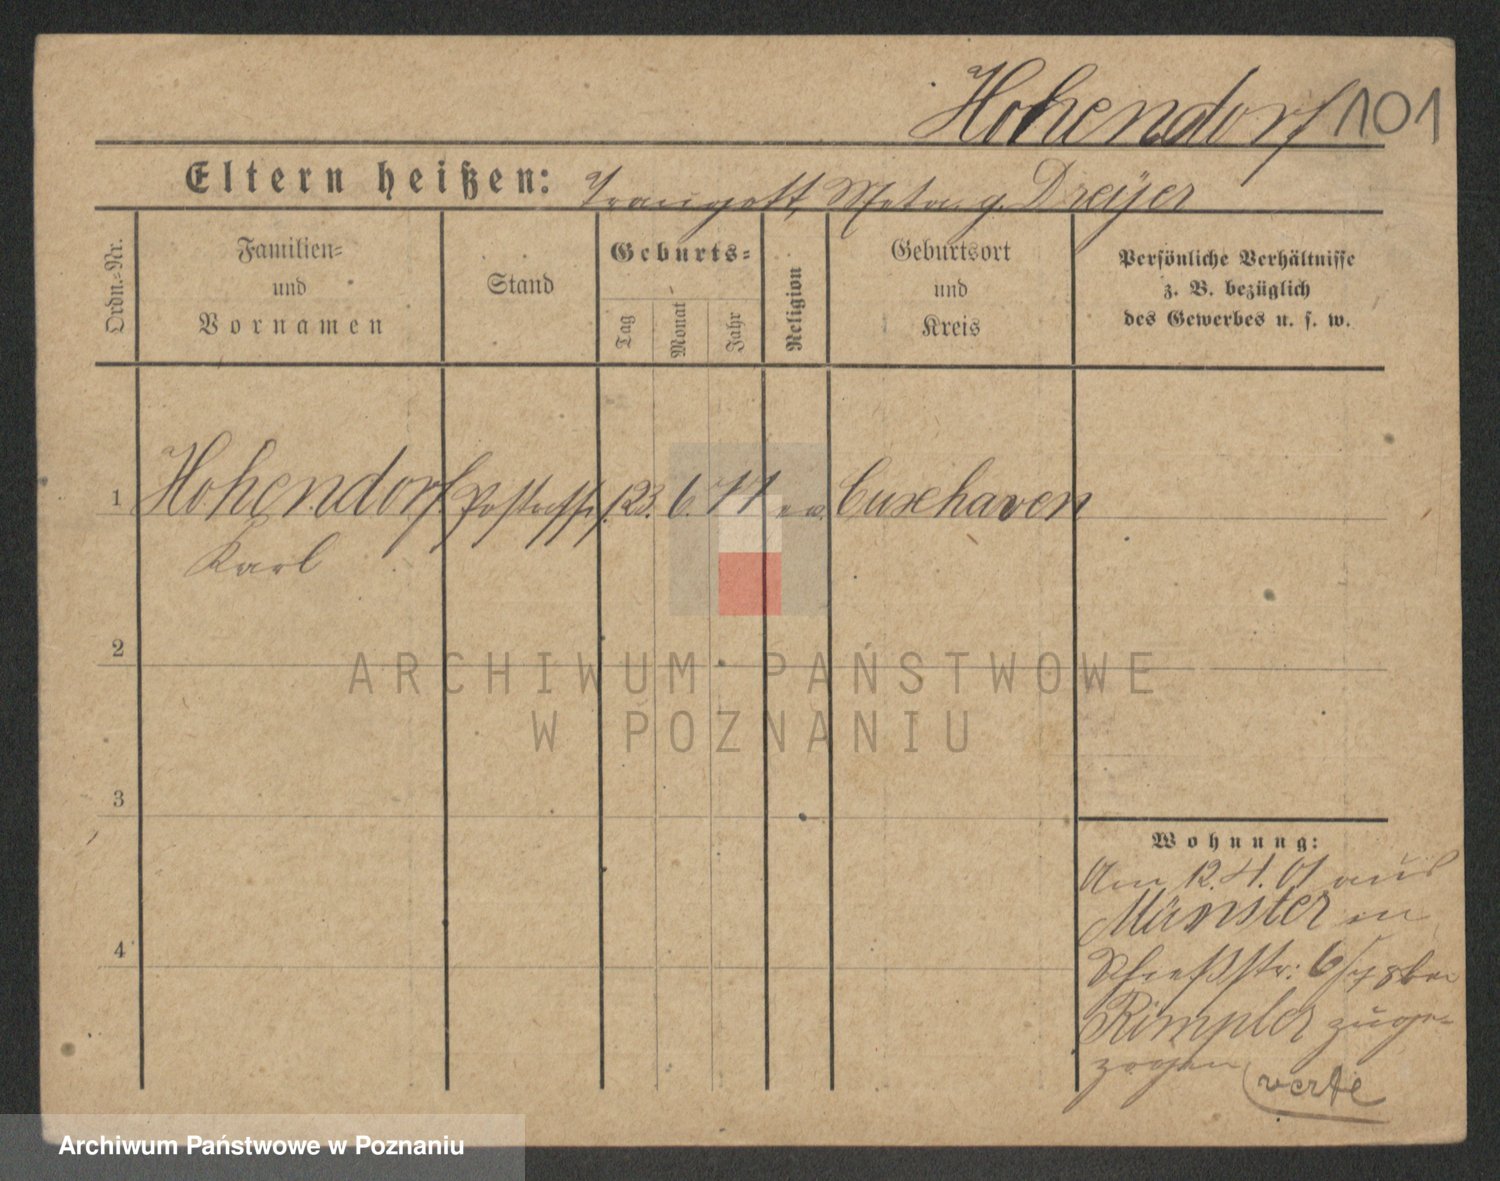 Hohendorf 101
Eltern heißen: Traugott, Meta g. Dreijer
Ordn.-Nr.
Familien-
und
Vornamen
Stand
Geburts-
Tag
Monat
Jahr
Religion
Geburtsort
und
Kreis
Persönliche Verhältnisse
z. B. bezüglich
des Gewerbes u. s. w.
1 Hohendorf 23. 6. 77 ev. Cuxhaven
Karl
2
ARCHIWUM PAŃSTWOWE
W POZNANIU
3
4
Wohnung:
Am 12.4.01 aus
Münster in
Schießstr: 6 bei
Rimpler zuge-
zogen verte
Archiwum Państwowe w Poznaniu